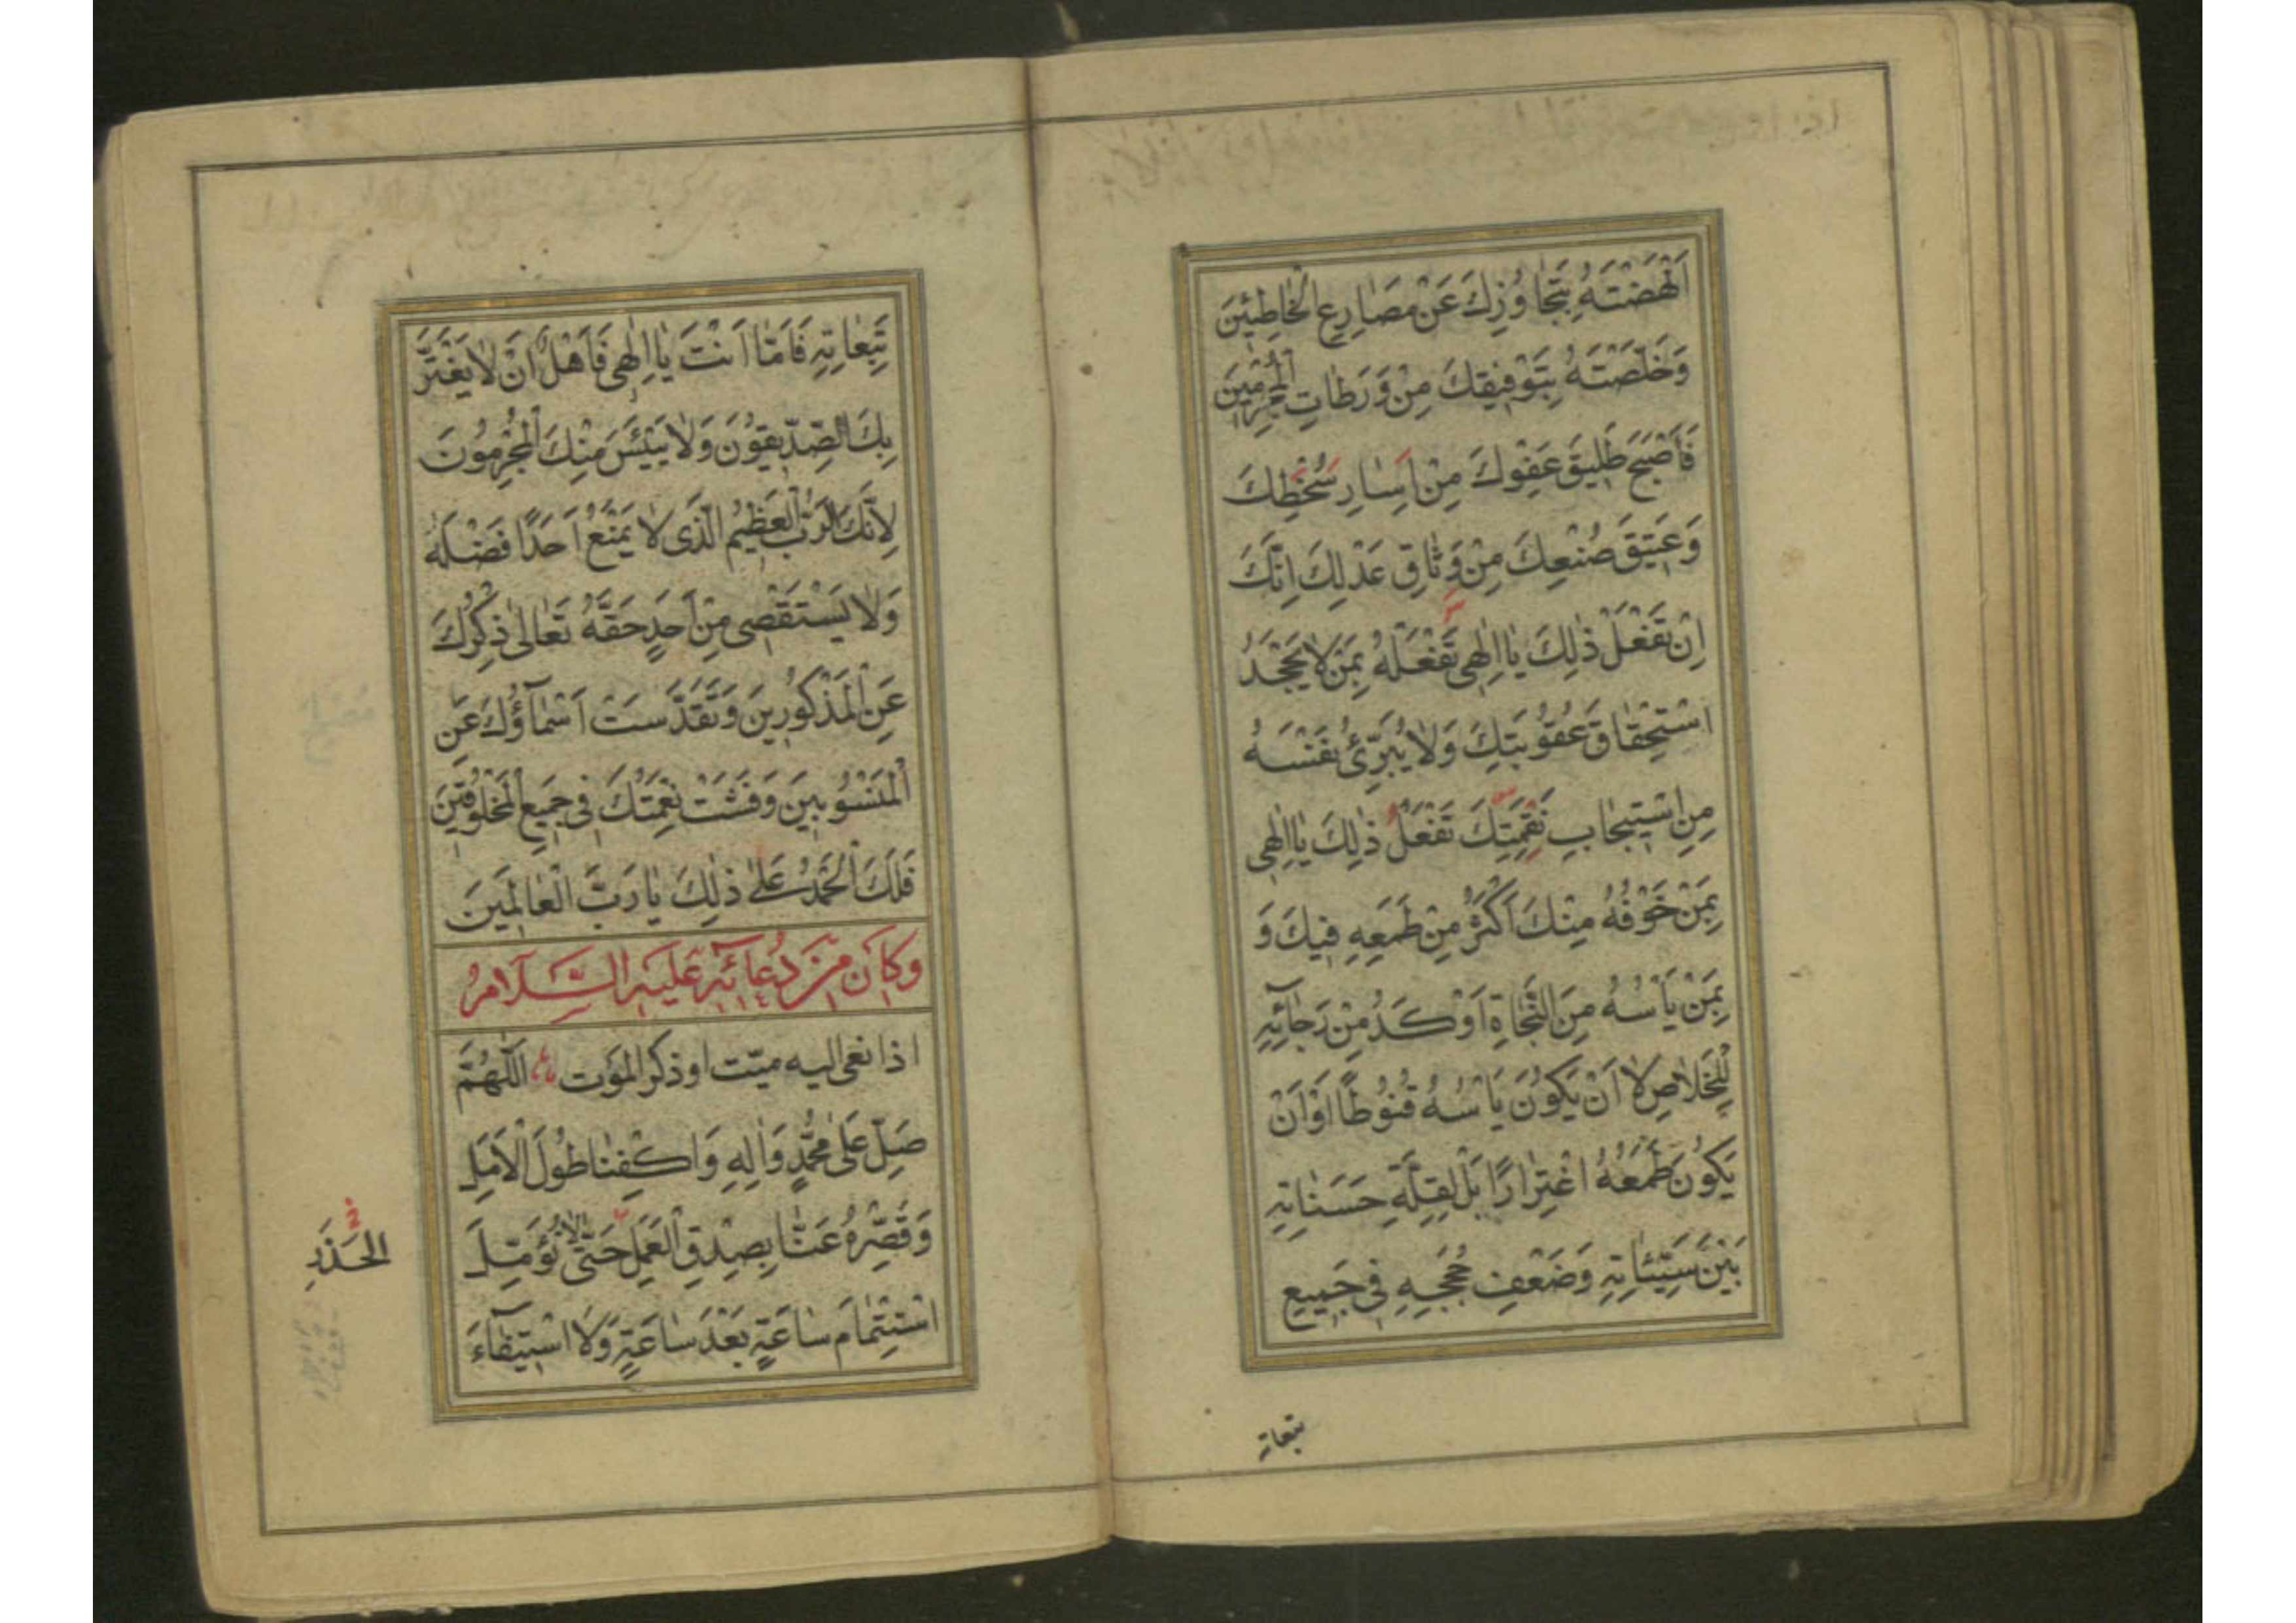 اَنْهَضْتَهُ بِتَجاوُزِكَ عَنْ مَصارِعِ الْخاطِئينَ
وَخَلَّصْتَهُ بِتَوْفيقِكَ مِنْ وَرَطاتِ الْمُجْرِمينَ
فَاَصْبَحَ طَليقَ عَفْوِكَ مِنْ اَسارِ سُخْطِكَ
وَعَتيقَ صُنْعِكَ مِنْ وَثاقِ عَدْلِكَ اِنَّكَ
اِنْ تَفْعَلْ ذٰلِكَ يا اِلٰهي تَفْعَلْهُ بِمَنْ لا يَجْحَدُ
اسْتِحْقاقَ عُقُوبَتِكَ وَلا يُبَرِّئُ نَفْسَهُ
مِنِ اسْتيجابِ نَقِمَتِكَ تَفْعَلُ ذٰلِكَ يا اِلٰهي
بِمَنْ خَوْفُهُ مِنْكَ اَكْثَرُ مِنْ طَمَعِهِ فيكَ وَ
بِمَنْ يَاْسُهُ مِنَ النَّجاةِ اَوْكَدُ مِنْ رَجآئِهِ
لِلْخَلاصِ لا اَنْ يَكُونَ يَاْسُهُ قُنُوطًا اَوْ اَنْ
يَكُونَ طَمَعُهُ اغْتِرارًا بَلْ لِقِلَّةِ حَسَناتِهِ
بَيْنَ سَيِّئاتِهِ وَضَعْفِ حُجَجِهِ في جَميعِ
تبعاته
تَبِعاتِهِ فَاَمّا اَنْتَ يا اِلٰهي فَاَهْلٌ اَنْ لا يَغْتَرَّ
بِكَ الصِّدّيقُونَ وَلا يَيْئَسَ مِنْكَ الْمُجْرِمُونَ
لِاَنَّكَ الرَّبُّ الْعَظيمُ الَّذي لا يَمْنَعُ اَحَدًا فَضْلَهُ
وَلا يَسْتَقْصي مِنْ اَحَدٍ حَقَّهُ تَعالى ذِكْرُكَ
عَنِ الْمَذْكُورينَ وَتَقَدَّسَتْ اَسْمآؤُكَ عَنِ
الْمَنْسُوبينَ وَفَشَتْ نِعْمَتُكَ في جَميعِ الْمَخْلُوقينَ
فَلَكَ الْحَمْدُ عَلىٰ ذٰلِكَ يا رَبَّ الْعالَمينَ
وَكانَ مِنْ دُعائِهِ عَلَيْهِ السَّلامُ
اذا نعى اليه ميّت او ذكر الموت اَللّٰهُمَّ
صَلِّ عَلى مُحَمَّدٍ وَاٰلِهِ وَاكْفِنا طُولَ الْاَمَلِ
وَقَصِّرْهُ عَنّا بِصِدْقِ الْعَمَلِ حَتّى لا نُؤَمِّلَ
اسْتِتْمامَ ساعَةٍ بَعْدَ ساعَةٍ وَلا اسْتيفآءَ
الحَذَرِ